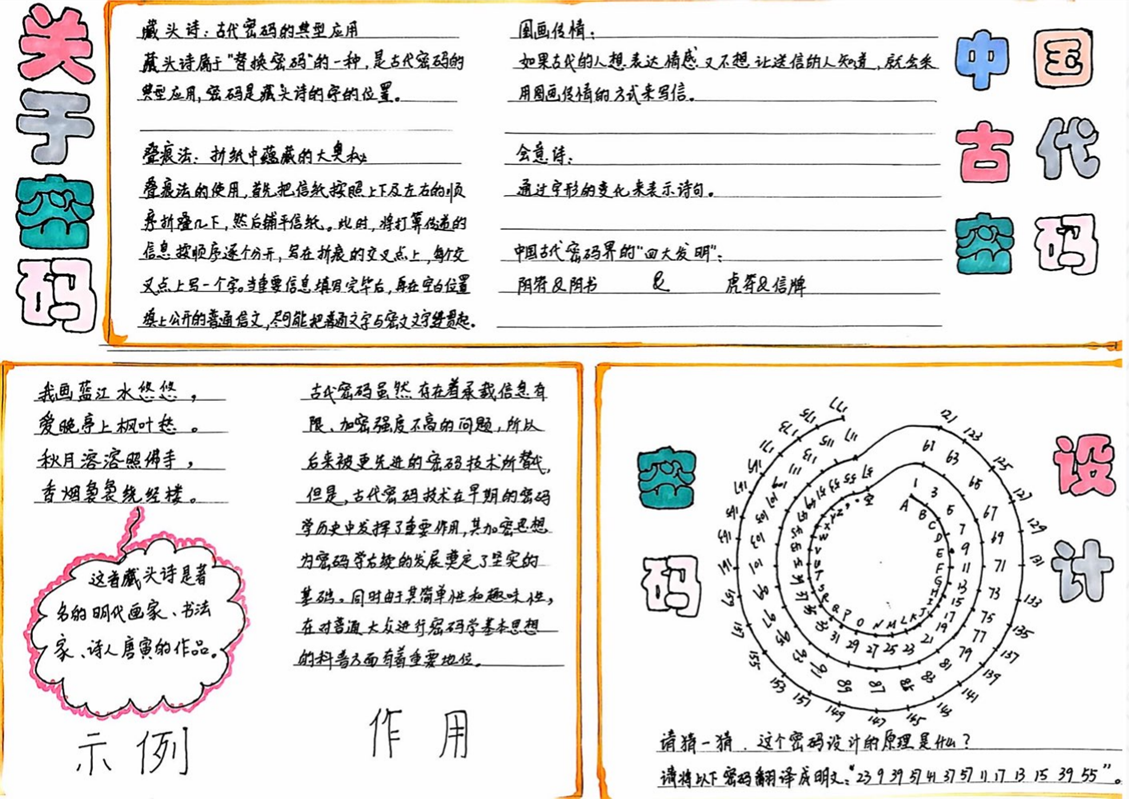 关于密码
藏头诗：古代密码的典型应用
藏头诗属于"替换密码"的一种，是古代密码的
典型应用，密码是藏头诗的字的位置。
叠痕法：折纸中蕴藏的大奥秘
叠痕法的使用，首先把信纸按照上下及左右的顺
序折叠几下，然后铺平信纸。此时，将打算传递的
信息按顺序逐个分开，写在折痕的交叉点上，每个交
叉点上写一个字。当重要信息填写完毕后，再在空白位置
填上公开的普通信文，尽可能把普通文字与密文文字连贯起。
图画传情：
如果古代的人想表达情感又不想让送信的人知道，就会采
用图画传情的方式来写信。
会意诗：
通过字形的变化来表示诗句。
中国古代密码界的"四大发明"：
阴符&阴书 & 虎符&信牌
中国
古代
密码
我画蓝江水悠悠，
爱晚亭上枫叶愁。
秋月溶溶照佛手，
香烟袅袅绕经楼。
这首藏头诗是著
名的明代画家、书法
家、诗人唐寅的作品。
示例
古代密码虽然存在着承载信息有
限、加密强度不高的问题，所以
后来被更先进的密码技术所替代，
但是，古代密码技术在早期的密码
学历史中发挥了重要作用，其加密思想
为密码学后续的发展奠定了坚实的
基础。同时由于其简单性和趣味性，
在对普通大众进行密码学基本思想
的科普方面有着重要地位。
作用
密码
设计
A B C D E F G H I J K L M N O P Q
1 3 5 7 9 11 13 15 17 19 21 23 25 27 29 31 33
61 63 65 67 69 71 73 75 77 79 81
121 123 125 127 129 131 133 135 137 139 141 143 145 147 149 151 153 155 157 159 161
请猜一猜，这个密码设计的原理是什么？
请将以下密码翻译成明文："23 9 39 57 41 37 57 11 17 13 15 39 55"。